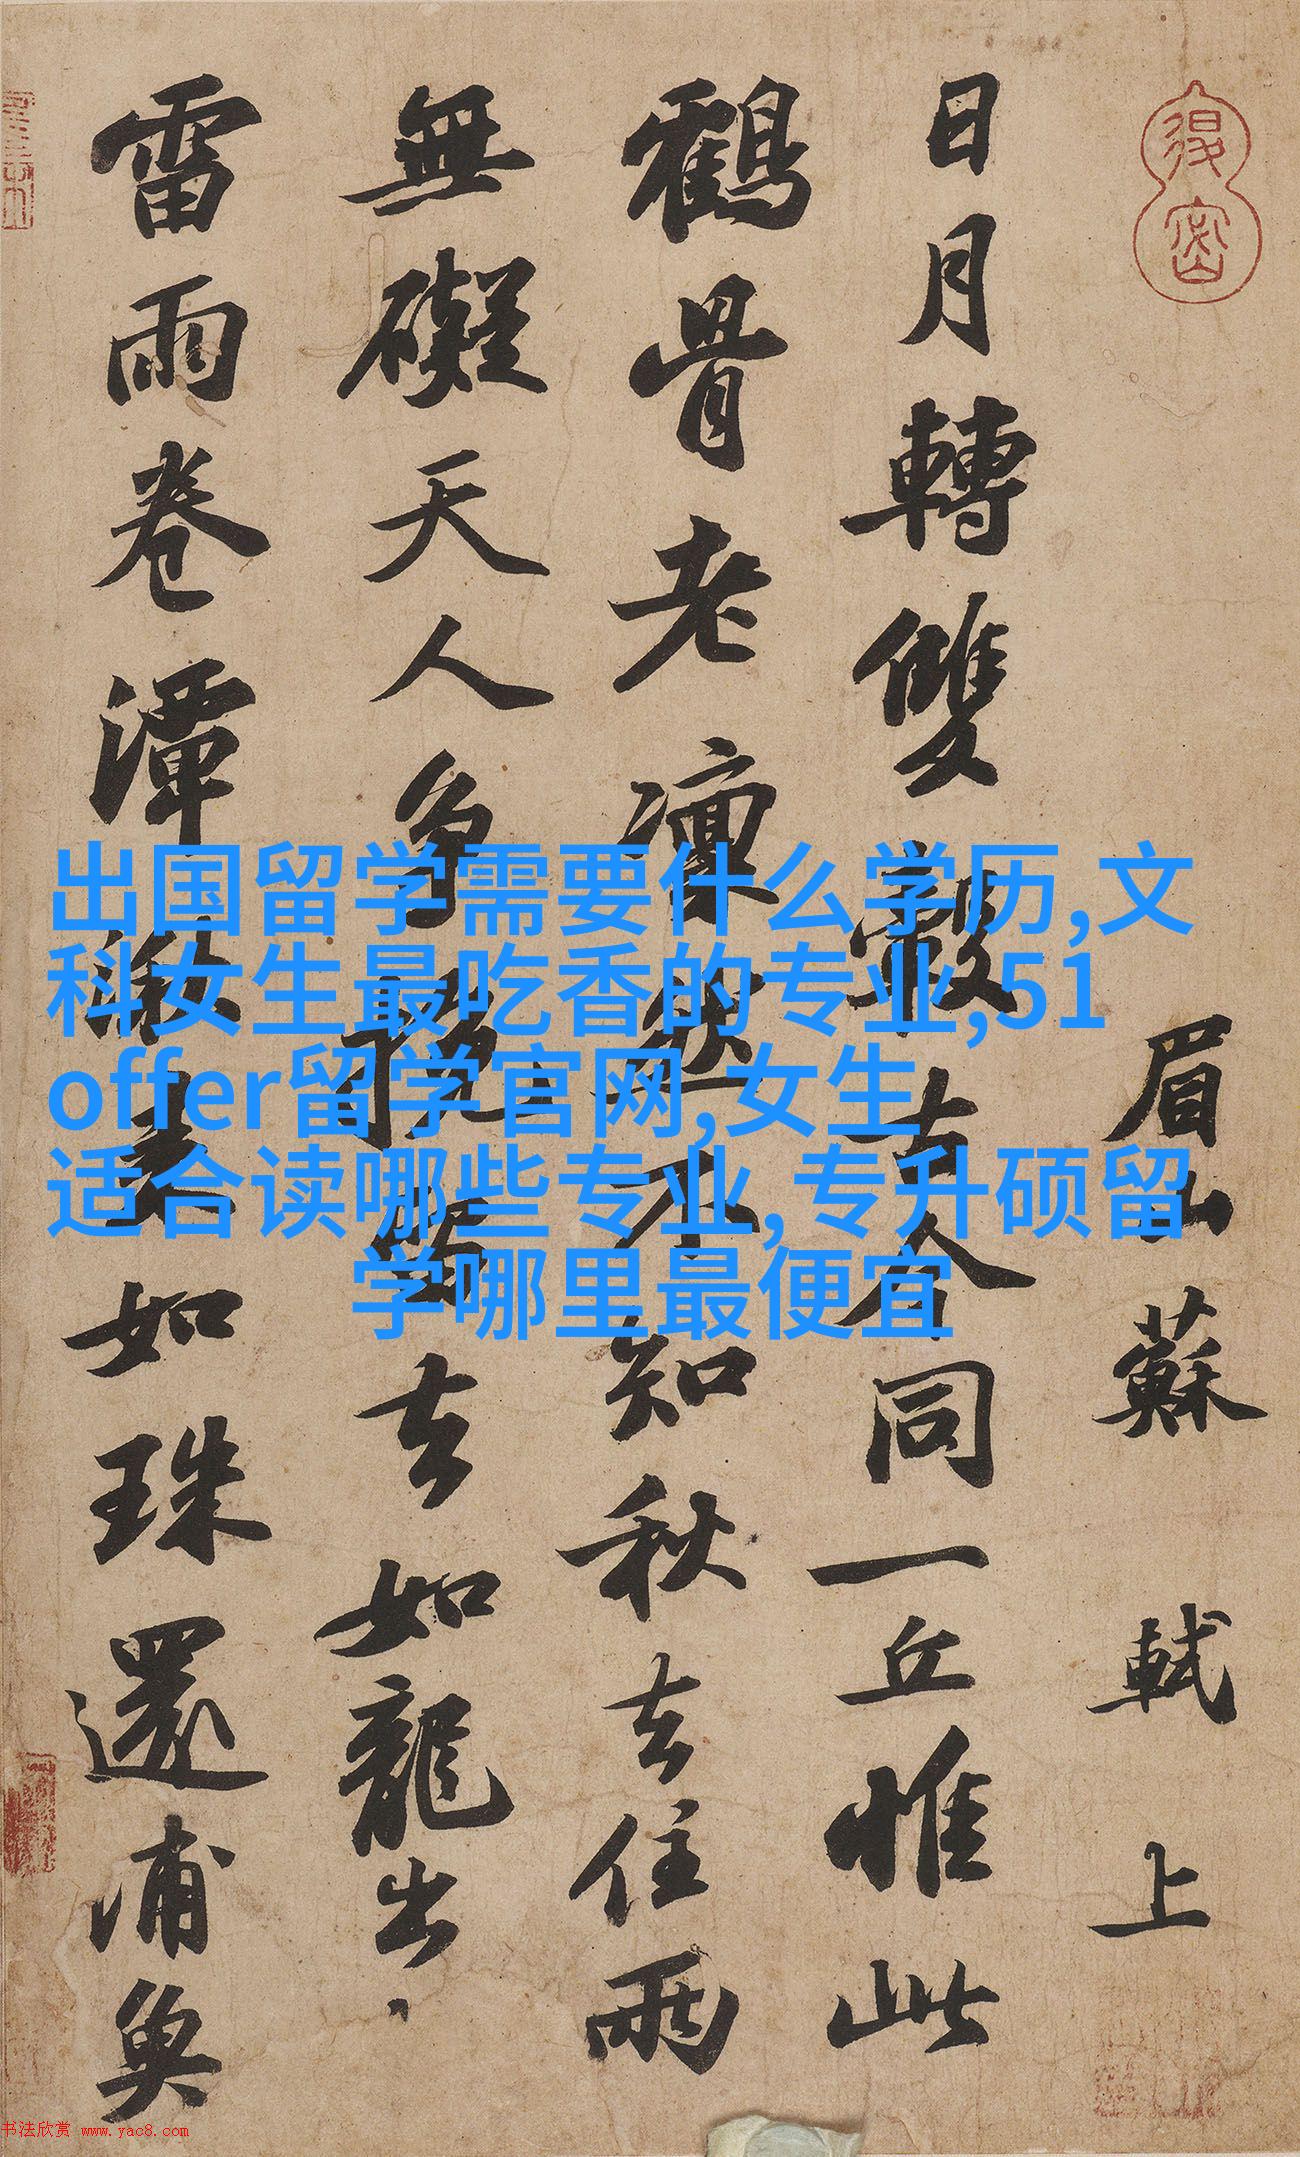 眉山蘇軾上
日月轉雙轂古今同一丘惟此
鶴骨老凜然不知秋去住兩
無礙天人争挽留去如龍出
雷雨卷潭湫来如珠還浦魚
出国留学需要什么学历,文
科女生最吃香的专业,51
offer留学官网,女生
适合读哪些专业,专升硕留
学哪里最便宜
书法欣赏 www.yac8.com